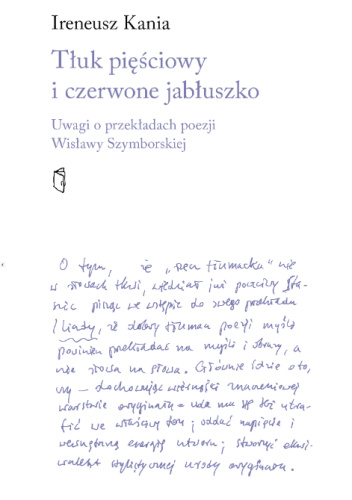 Ireneusz Kania
Tłuk pięściowy
i czerwone jabłuszko
Uwagi o przekładach poezji
Wisławy Szymborskiej
O tym, że „rzecz tłumacka” nie
w słowach tkwi, wiedział już poczciwy Sta-
nic pisząc we wstępie do swego przekładu
Iliady, iż dobry tłumacz poezji myśli
powinien przekładać na myśli i obrazy, a
nie słowa na słowa. Głównie idzie o to,
czy – dochowując wierności znaczeniowej
warstwie oryginału – uda mu się też utra-
fić we właściwy ton; oddać napięcia i
wewnętrzną energię utworu; stworzyć ekwi-
walent stylistycznej urody oryginału.